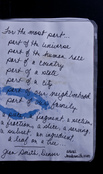 For the most part
part of the universe
part of the human race
part of a country
part of a state
part of a city
part of our neighborhood
part family,
fragment, a section,
a fraction, a slice, a serving,
a subset, an ingredient
a leaf on a tree.